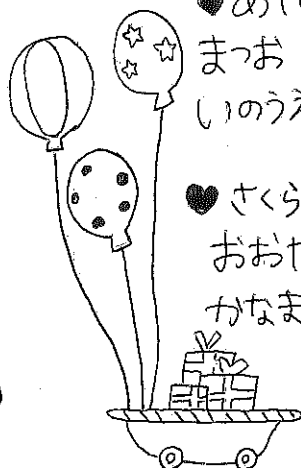 ♥め
まつお
いのうえ
♥さくら
おおた
かなま